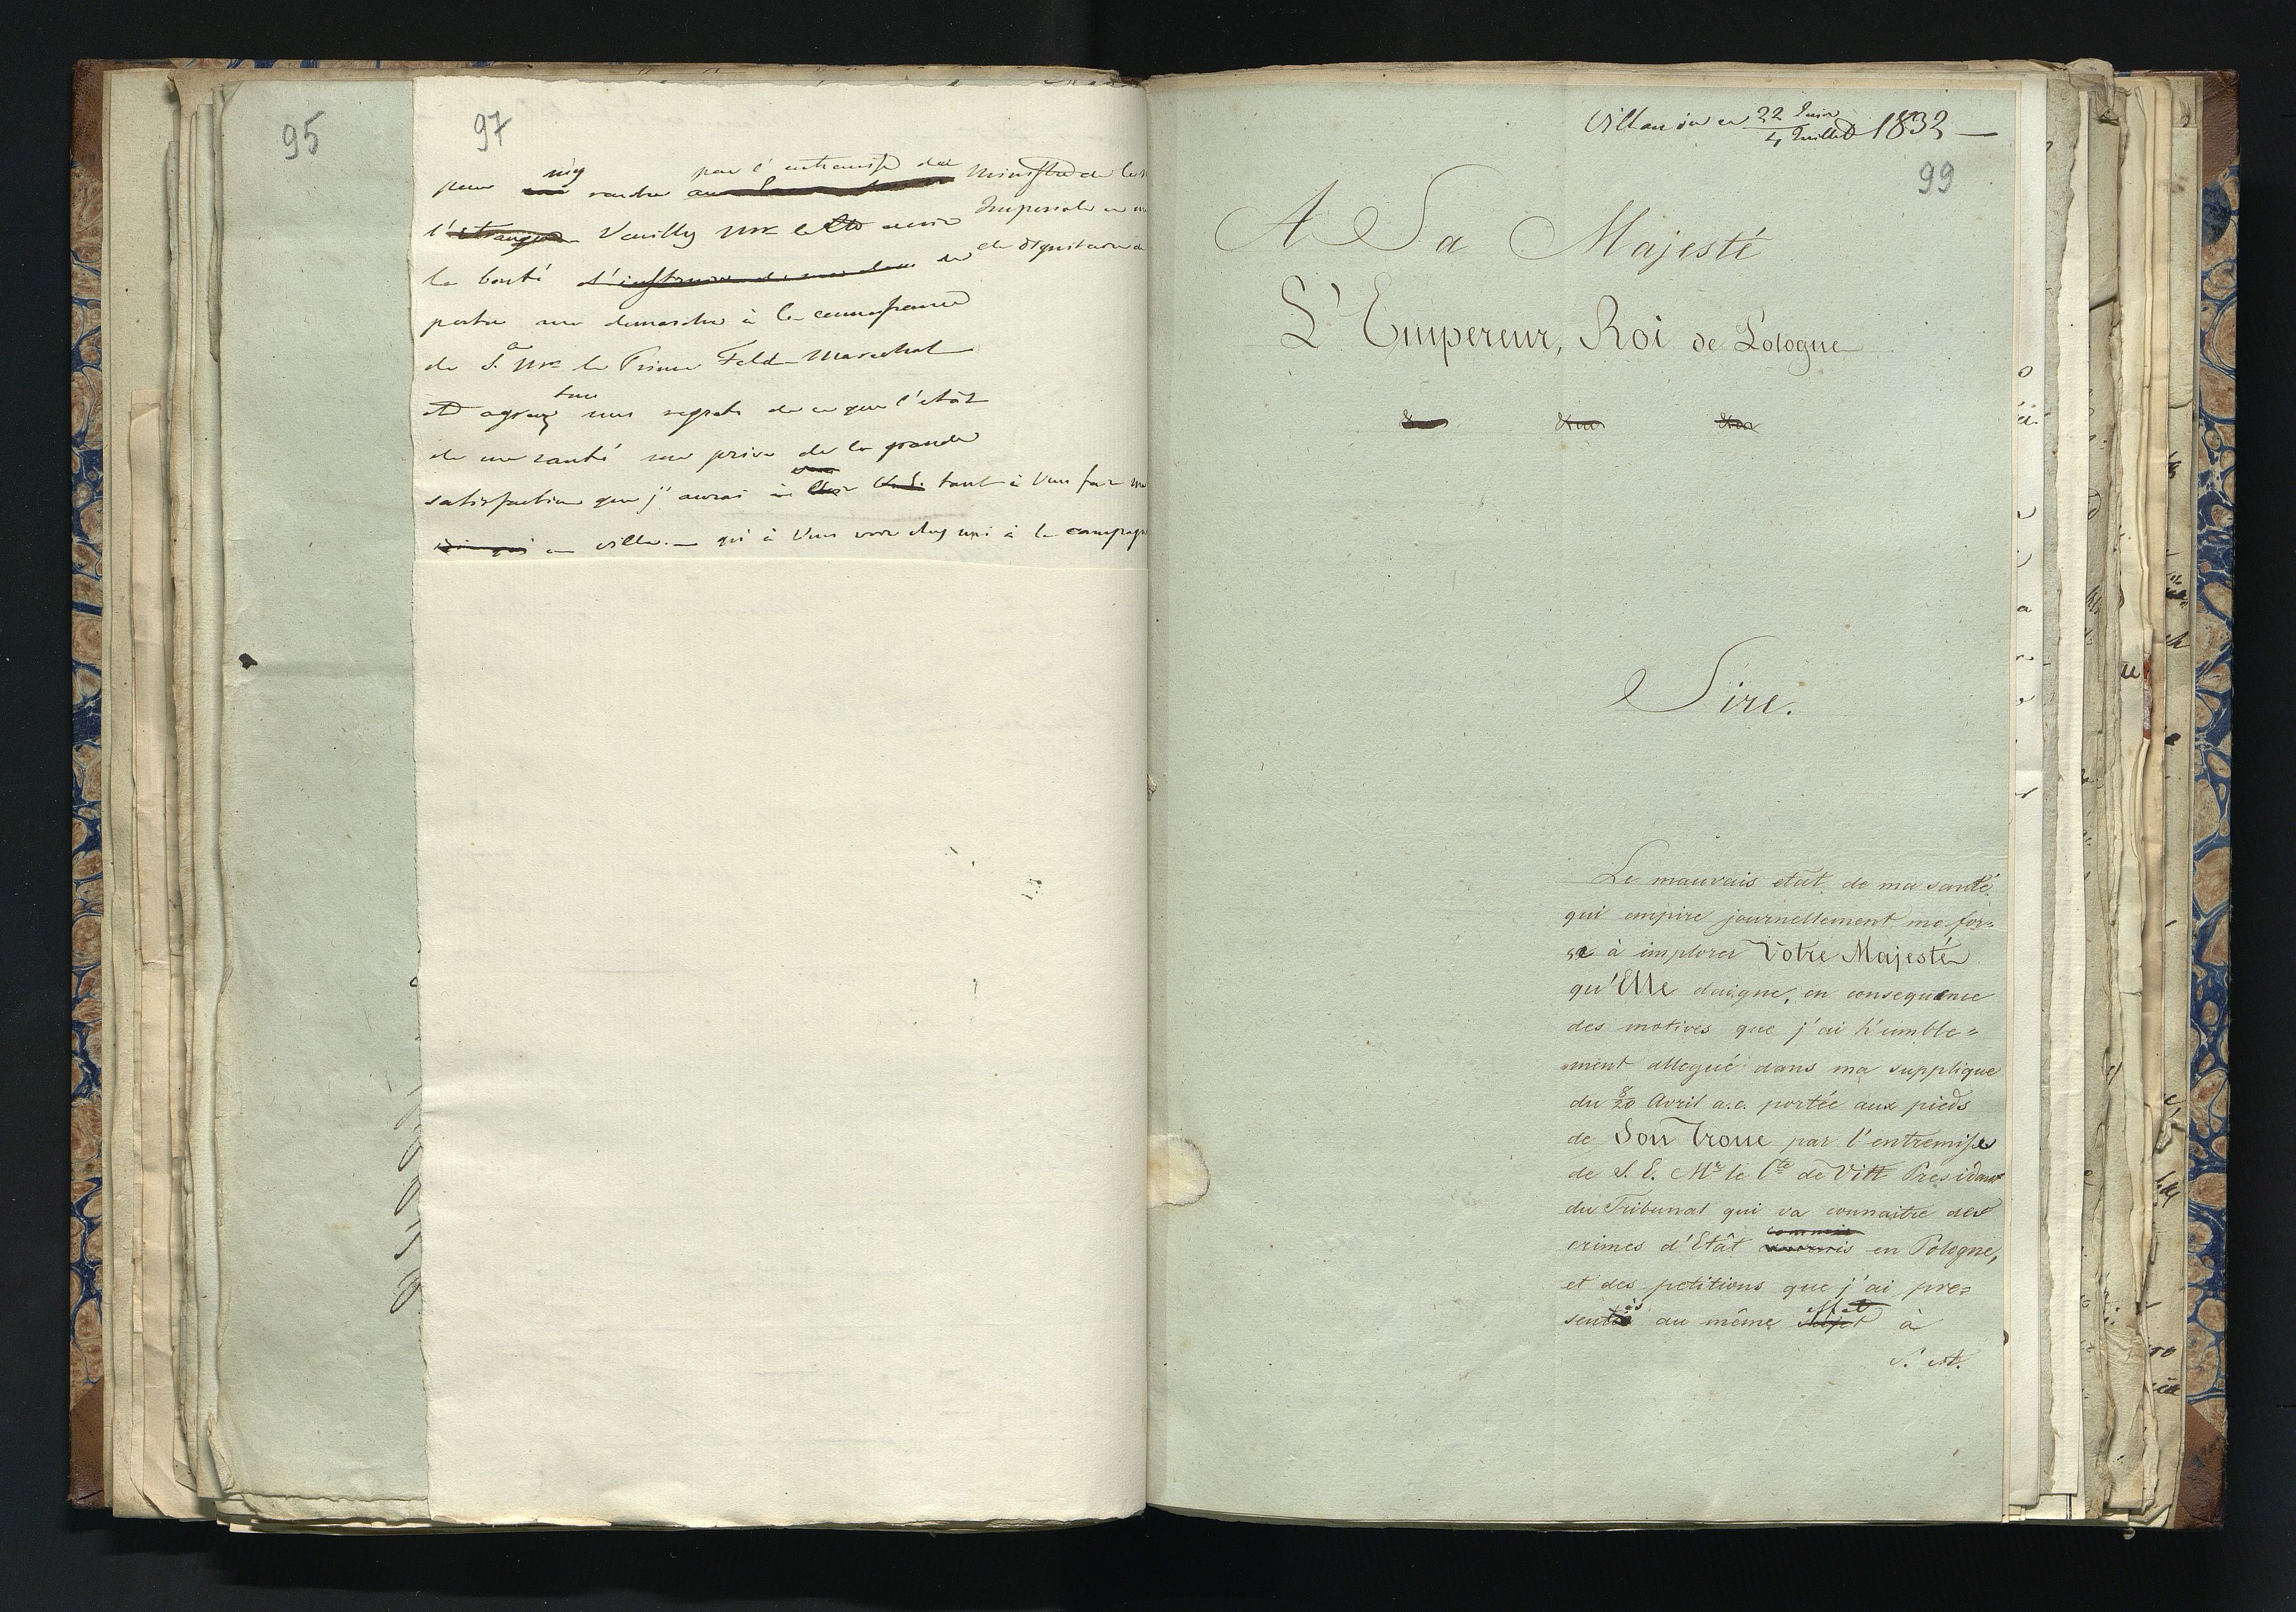 95
97
m'y par l'entremise du
pour rendre Ministre de la
l'étranger Veuillez Mr le Cte avoir Imperiale
la bonté d'instruire de dignitaire
porter ma demarche à la connaissance
de S. A. Mr le Prince Feld-Marechal
tous
et agreez mes regrets de ce que l'etât
de ma santé me prive de la grande
satisfaction que j'aurai à tant à Vous
en ville. — qu'à Vous voir chez moi à la campagne
Villanów ce 22 Juin
4 Juillet 1832 —
99
A Sa Majesté
L'Empereur, Roi de Pologne
&ca &ca &ca
Sire.
Le mauvais etat de ma santé
qui empire journellement me for=
se à implorer Votre Majesté
qu'Elle daigne, en consequence
des motives que j'ai h'umble=
ment allegué dans ma supplique
du 8/20 Avril a.c. portée aux pieds
de Son Trone par l'entremise
de S. E. Mr le Cte de Vitt President
du Tribunal qui va connaitre des
commis
crimes d'Etât en Pologne,
et des petitions que j'ai pre=
effet
sentés au même à
S. A.